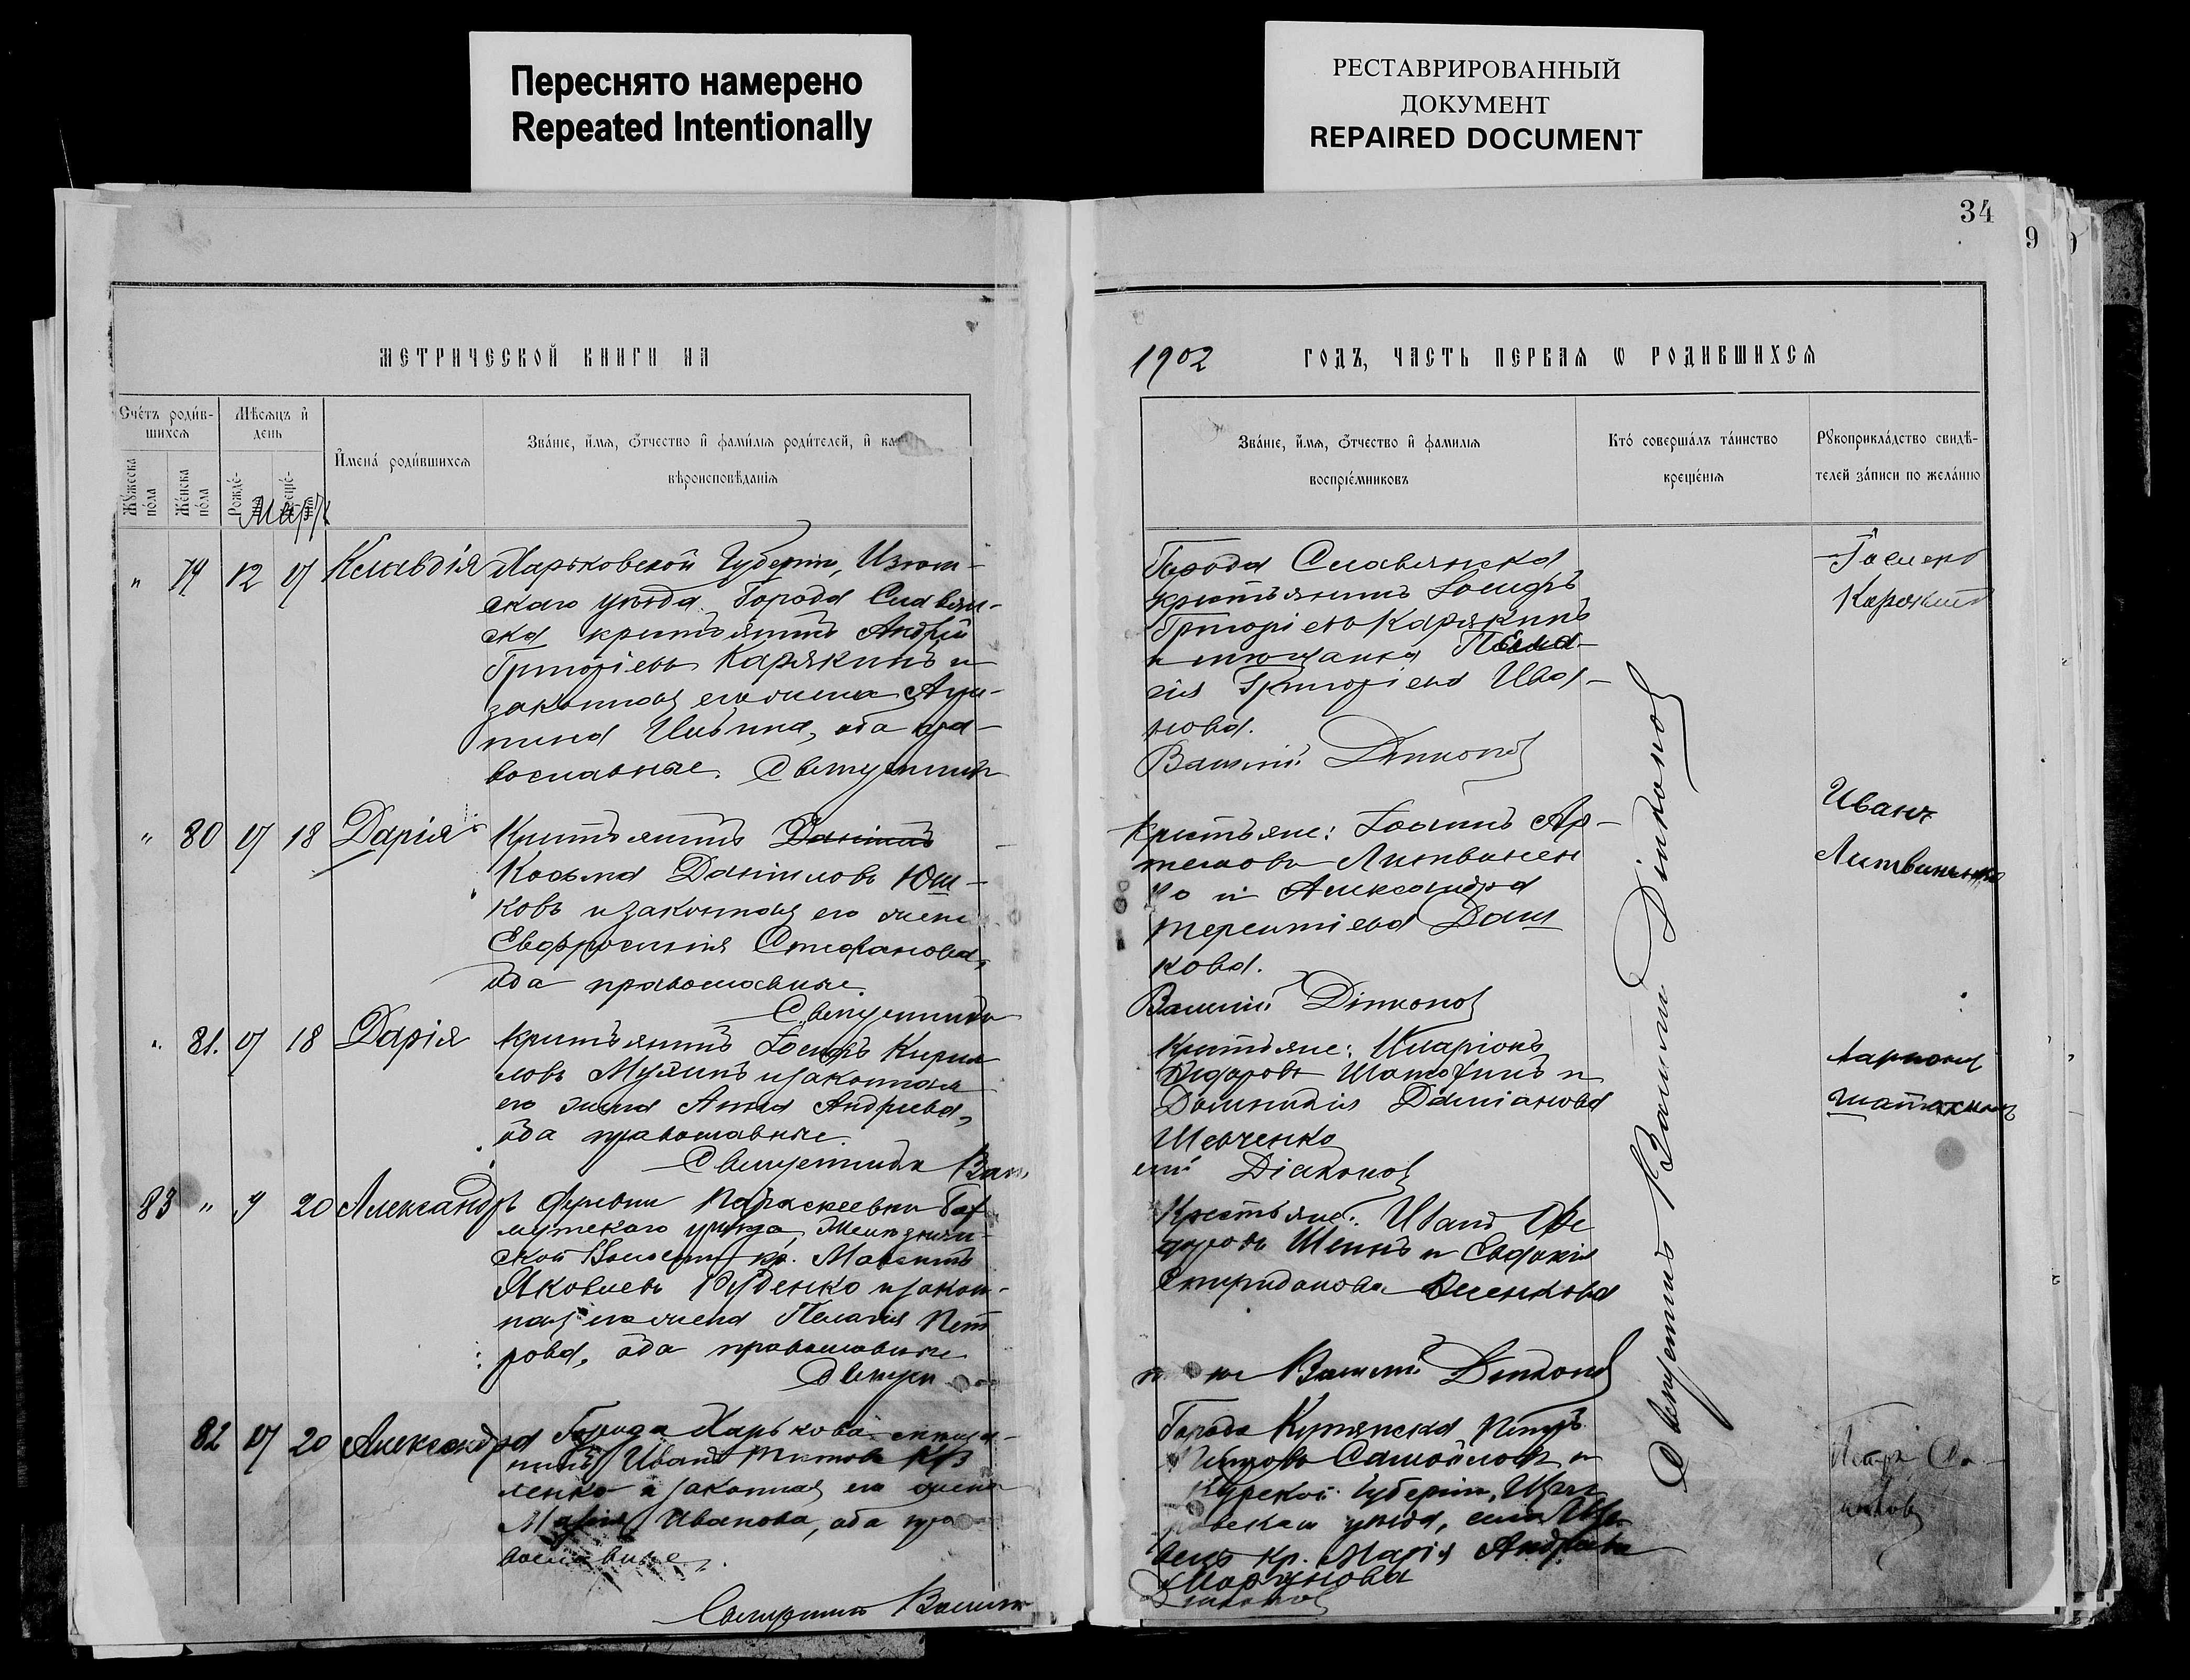 Переснято намерено
Repeated Intentionally
РЕСТАВРИРОВАННЫЙ
ДОКУМЕНТ
REPAIRED DOCUMENT
34
9
МЕТРИЧЕСКОЙ КНИГИ НА
1902 ГОДЪ, ЧАСТЬ ПЕРВАЯ Ѡ РОДИВШИХСЯ
Счетъ родив-
шихся
Мѣсяцъ и
день
Имена родившихся
Званіе, имя, отчество и фамилія родителей, и ка
вѣроисповѣданія
Мужеска
пола
Женска
пола
Рожде-
Мартъ
Званіе, имя, отчество и фамилія
воспріемниковъ
Кто совершалъ таинство
крещенія
Рукоприкладство свидѣ-
телей записи по желанію
" 79 12 17 Клавдія Харьковской Губерніи, Изюм-
скаго уѣзда Города Славян-
ска крестьянинъ Андрей
Григоріевъ Карякинъ и
законная его жена Агри-
пина Ильина, оба пра-
вославные. Священникъ
Города Славянска
крестьянинъ Іосифъ
Григоріевъ Карякинъ
и мѣщанка
Григоріева Ива-
нова.
Василій Діаконовъ
" 80 17 18 Дарія Крестьянинъ
Косьма Даніиловъ Юш-
ковъ и законная его жена
Евфросинія Стефанова,
оба православные.
Священникъ
Крестьяне: Іоаннъ Ар-
темовъ Литвинен
ко и Александра
Терентіева Даш
кова.
Василій Діаконовъ
Иванъ
Литвиненко
" 81. 17 18 Дарія крестьянинъ Іосифъ Кирил
ловъ и законная
его жена Анна Андреева,
оба православные.
Священникъ Васи
Крестьяне: Иларіонъ
Шатохинъ и
Домникія Даміанова
Шевченко
лій Діаконовъ
Ларионъ
Шатохинъ
83 " 9 20 Александръ деревни Параскеевки Бах
мутскаго уѣзда,
ской Волости кр.
Яковлевъ Руденко и закон-
ная его жена Пелагія Пет
рова, оба православные
Священ
Крестьяне: Иванъ Ѳе
доровъ и Евдокія
Спиридонова
Василій Діаконовъ
82 17 20 Александра Города Харькова мѣща-
нинъ Иванъ Титовъ
ленко и законная его жена
Марія Иванова, оба пра
вославные.
Священникъ Василій
Города Купянска Петръ
Петровъ Самойловъ и
Курской Губерніи,
уѣзда, села
кр. Марія Андреева
Діаконовъ
Священникъ Василій Діаконовъ